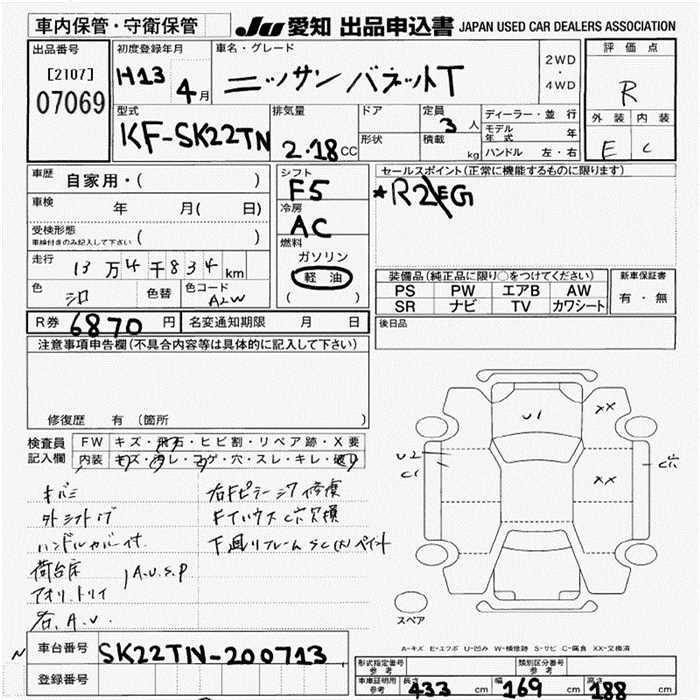 車内保管・守衛保管
JU 愛知 出品申込書 JAPAN USED CAR DEALERS ASSOCIATION
出品番号
[2107]
07069
初度登録年月
H13 4月
車名・グレード
ニッサン バネットT
2WD
・
4WD
評価点
R
外装 内装
E C
型式
KF-SK22TN
排気量
2.18CC
ドア
形状
定員
3人
積載
kg
ディーラー・並行
モデル年式 年
ハンドル 左・右
車歴 自家用・( )
車検 年 月( 日)
受検形態
車検付きのみ記入して下さい ( )
走行 13万4千834km
色 シロ 色替 色コード A2W
シフト
F5
冷房
AC
燃料
ガソリン
軽油
( )
セールスポイント(正常に機能するものに限ります)
*R2
装備品(純正品に限り○をつけてください)
PS PW エアB AW
SR ナビ TV カワシート
新車保証書
有・無
R券 6870円 名変通知期限 月 日
後日品
注意事項申告欄(不具合内容等は具体的に記入して下さい)
修復歴 有(箇所 )
検査員記入欄
FW キズ・飛石・ヒビ割・リペア跡・X要
内装 キズ・汚レ・コゲ・穴・スレ・キレ・破レ
キバミ
外シフトノブ
ハンドルカバー付
荷台床
アオリ、トリイ
A.U.S.P
右、A.U.
右Fピラーシワ修復
FインハウスC穴欠損
下廻リフレームSC(大)ペイント
U1
XX
XX
U2
C1
C穴
スペア
A-キズ E-エクボ U-凹み W-補修跡 S-サビ C-腐食 XX-交換済
車台番号 SK22TN-200713
登録番号
形式指定番号
参考
類別区分番号
参考
車庫証明用
参考
長さ 433 cm 幅 169 cm 高さ 188 cm